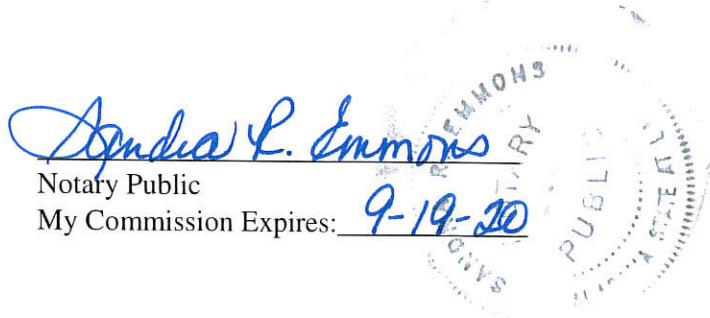 Sandra R. Emmons
Notary Public
My Commission Expires: 9-19-20
SANDRA R EMMONS
NOTARY PUBLIC
STATE AT